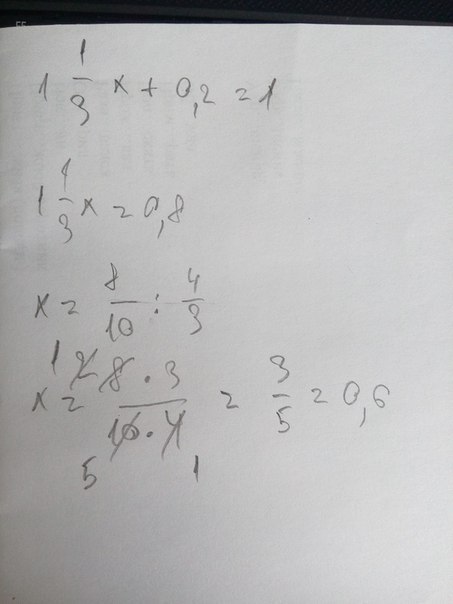 1 1/3 x + 0,2 = 1
1 1/3 x = 0,8
x = 8/10 : 4/3
x = 1 2 8 · 3 / 10 · 4 = 3/5 = 0,6
5 1